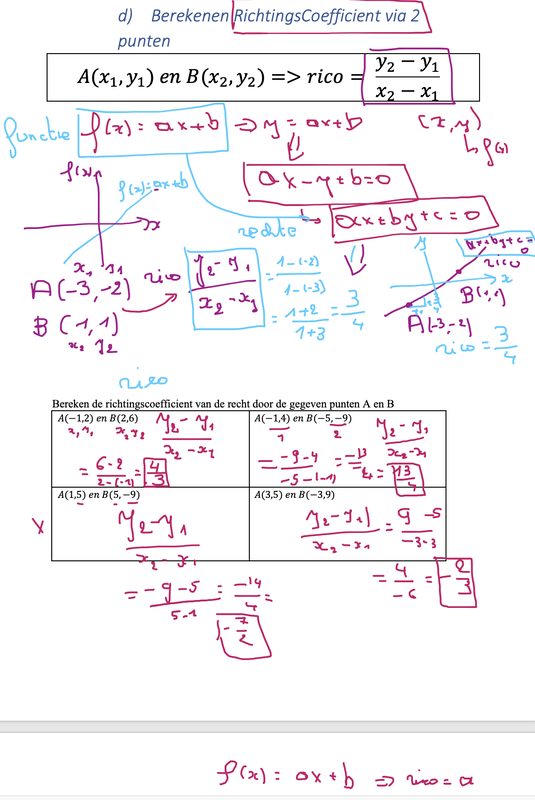 d) Berekenen RichtingsCoefficient via 2
punten
A(x₁, y₁) en B(x₂, y₂) => rico = (y₂ − y₁)/(x₂ − x₁)
functie f(x) = ax+b ⇒ y = ax+b (x, y)
↳ f(x)
f(x) f(x)=ax+b x
ax-y+b=0
rechte → ax+by+c=0
y ax+by+c=0
rico x
x₁ y₁
A(-3,-2) rico (y₂-y₁)/(x₂-x₁) = (1-(-2))/(1-(-3))
B(1,1) = (1+2)/(1+3) = 3/4
x₂ y₂
B(1,1)
A(-3,-2)
rico = 3/4
rico
Bereken de richtingscoefficient van de recht door de gegeven punten A en B
A(−1,2) en B(2,6)
x₁ y₁ x₂ y₂ (y₂-y₁)/(x₂-x₁)
= (6-2)/(2-(-1)) = 4/3
A(−1,4) en B(−5, −9)
1 2 (y₂-y₁)/(x₂-x₁)
= (-9-4)/(-5-(-1)) = -13/-4 = 13/4
A(1,5) en B(5, −9)
x (y₂-y₁)/(x₂-x₁)
= (-9-5)/(5-1) = -14/4 =
-7/2
A(3,5) en B(−3,9)
(y₂-y₁)/(x₂-x₁) = (9-5)/(-3-3)
= 4/-6 = -2/3
f(x) = ax+b ⇒ rico = a